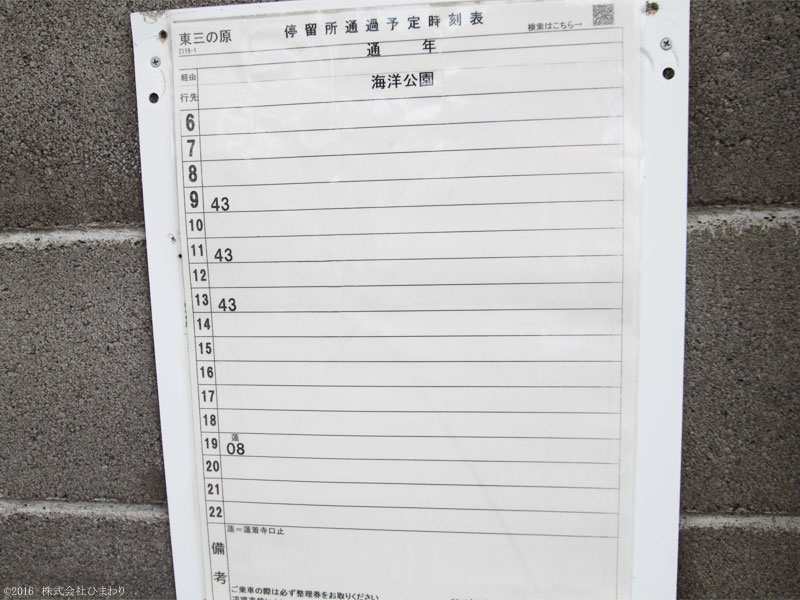 東三の原
停留所通過予定時刻表
検索はこちら→
通 年
経由
行先
海洋公園
6
7
8
9 43
10
11 43
12
13 43
14
15
16
17
18
19 蓮 08
20
21
22
備考
蓮＝蓮着寺口止
ご乗車の際は必ず整理券をお取りください
©2016 株式会社ひまわり